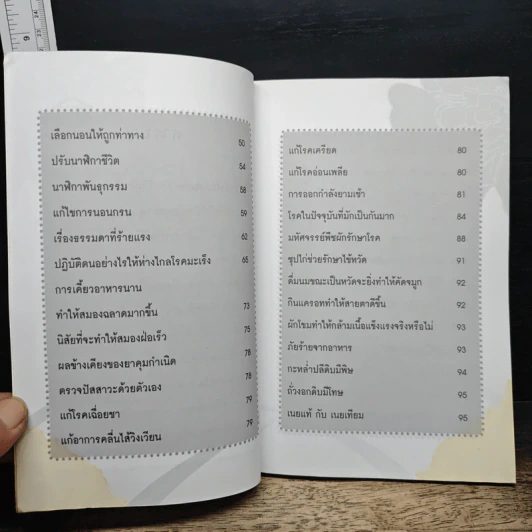 เลือกนอนให้ถูกท่าทาง 50
ปรับนาฬิกาชีวิต 54
นาฬิกาพันธุกรรม 58
แก้ไขการนอนกรน 59
เรื่องธรรมดาที่ร้ายแรง 62
ปฏิบัติตนอย่างไรให้ห่างไกลโรคมะเร็ง 65
การเคี้ยวอาหารนาน
ทำให้สมองฉลาดมากขึ้น 73
นิสัยที่จะทำให้สมองฝ่อเร็ว 75
ผลข้างเคียงของยาคุมกำเนิด 78
ตรวจปัสสาวะด้วยตัวเอง 78
แก้โรคเฉื่อยชา 79
แก้อาการคลื่นไส้วิงเวียน 79
แก้โรคเครียด 80
แก้โรคอ่อนเพลีย 80
การออกกำลังยามเช้า 81
โรคในปัจจุบันที่มักเป็นกันมาก 84
มหัศจรรย์พืชผักรักษาโรค 88
ซุปไก่ช่วยรักษาไข้หวัด 91
ดื่มนมขณะเป็นหวัดจะยิ่งทำให้คัดจมูก 92
กินแครอททำให้สายตาดีขึ้น 92
ผักโขมทำให้กล้ามเนื้อแข็งแรงจริงหรือไม่ 93
ภัยร้ายจากอาหาร 93
กะหล่ำปลีดิบมีพิษ 94
ถั่วงอกดิบมีโทษ 95
เนยแท้ กับ เนยเทียม 95